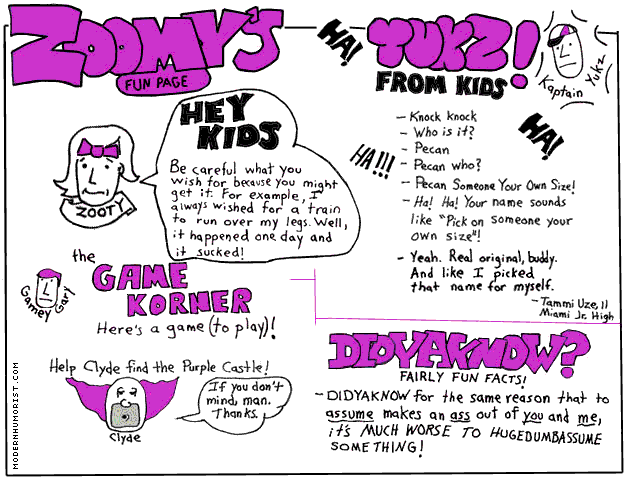 ZOOMY'S
FUN PAGE
HEY
KIDS
Be careful what you
wish for because you might
get it. For example, I
always wished for a train
to run over my legs. Well,
it happened one day and
it sucked!
ZOOTY
HA!
YUKZ!
FROM KIDS
Kaptain Yukz
HA!
HA!!!
- Knock knock
- Who is it?
- Pecan
- Pecan who?
- Pecan Someone Your Own Size!
- Ha! Ha! Your name sounds
like "Pick on someone your
own size"!
- Yeah. Real original, buddy.
And like I picked
that name for myself.
- Tammi Uze, 11
Miami Jr. High
the
GAME
KORNER
Gamey Gary
Here's a game (to play)!
Help Clyde find the Purple Castle!
If you don't
mind, man.
Thanks.
Clyde
DIDYAKNOW?
FAIRLY FUN FACTS!
- DIDYAKNOW for the same reason that to
assume makes an ass out of you and me,
it's MUCH WORSE TO HUGEDUMBASSUME
SOMETHING!
MODERNHUMORIST.COM